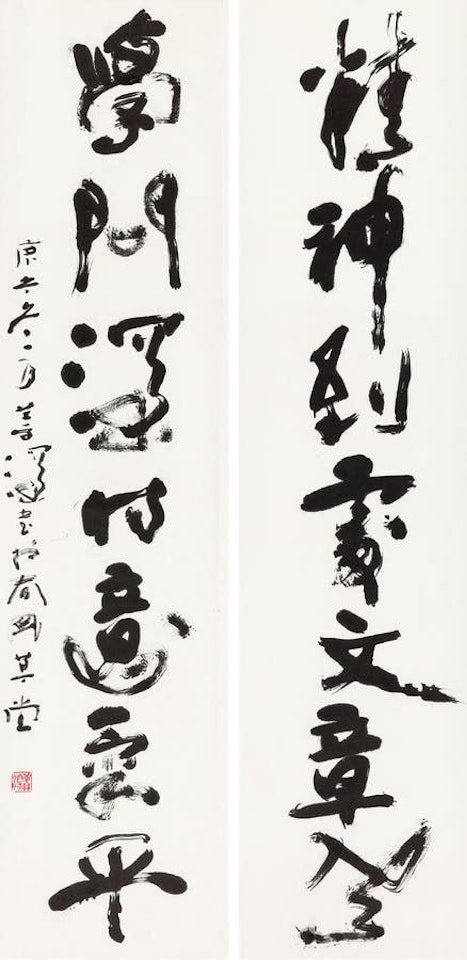 精神到處文章老
學問深時意氣平
庚午冬二月
草堂